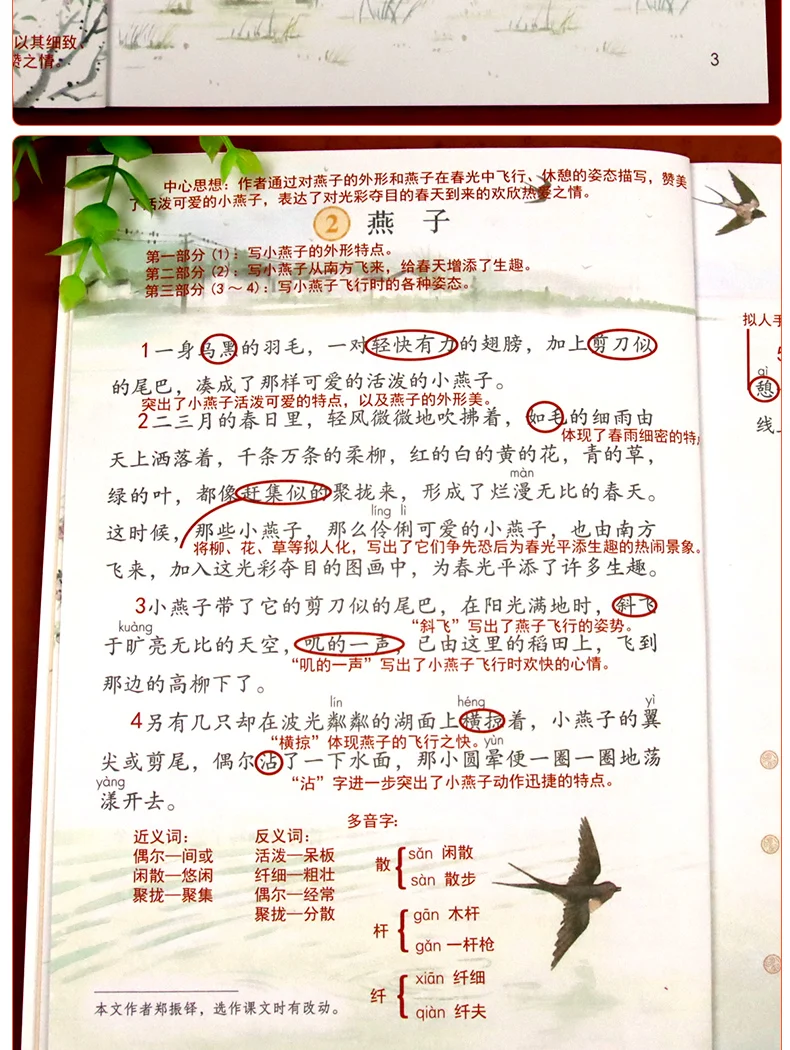 以其细致、
赞之情。
3
中心思想：作者通过对燕子的外形和燕子在春光中飞行、休憩的姿态描写，赞美
了活泼可爱的小燕子，表达了对光彩夺目的春天到来的欢欣热爱之情。
2 燕子
第一部分（1）：写小燕子的外形特点。
第二部分（2）：写小燕子从南方飞来，给春天增添了生趣。
第三部分（3～4）：写小燕子飞行时的各种姿态。
拟人手
1一身乌黑的羽毛，一对轻快有力的翅膀，加上剪刀似
的尾巴，凑成了那样可爱的活泼的小燕子。
qì
憩
突出了小燕子活泼可爱的特点，以及燕子的外形美。
2二三月的春日里，轻风微微地吹拂着，如毛的细雨由
线
体现了春雨细密的特
天上洒落着，千条万条的柔柳，红的白的黄的花，青的草，
màn
绿的叶，都像赶集似的聚拢来，形成了烂漫无比的春天。
líng lì
这时候，那些小燕子，那么伶俐可爱的小燕子，也由南方
将柳、花、草等拟人化，写出了它们争先恐后为春光平添生趣的热闹景象。
飞来，加入这光彩夺目的图画中，为春光平添了许多生趣。
3小燕子带了它的剪刀似的尾巴，在阳光满地时，斜飞
kuàng
“斜飞”写出了燕子飞行的姿势。
于旷亮无比的天空，叽的一声，已由这里的稻田上，飞到
“叽的一声”写出了小燕子飞行时欢快的心情。
那边的高柳下了。
lín héng yì
4另有几只却在波光粼粼的湖面上横掠着，小燕子的翼
“横掠”体现燕子的飞行之快。yùn
尖或剪尾，偶尔沾了一下水面，那小圆晕便一圈一圈地荡
yàng
“沾”字进一步突出了小燕子动作迅捷的特点。
漾开去。
多音字：
近义词： 反义词：
偶尔—间或 活泼—呆板
闲散—悠闲 纤细—粗壮
聚拢—聚集 偶尔—经常
聚拢—分散
散
sǎn 闲散
sàn 散步
杆
gān 木杆
gǎn 一杆枪
纤
xiān 纤细
qiàn 纤夫
本文作者郑振铎，选作课文时有改动。